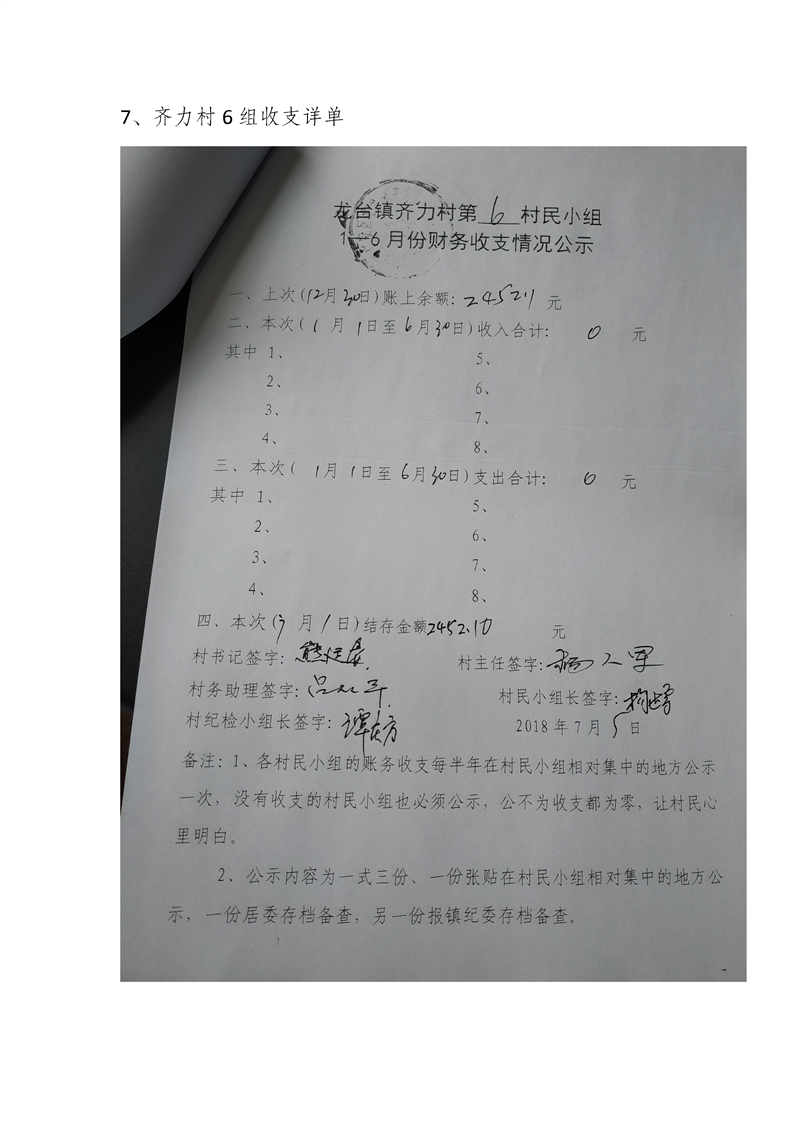 7、齐力村 6 组收支详单
龙台镇齐力村第 6 村民小组
1—6 月份财务收支情况公示
一、上次(12月30日)账上余额: 元
二、本次(1月1日至6月30日)收入合计: 0 元
其中 1、 5、
2、 6、
3、 7、
4、 8、
三、本次(1月1日至6月30日)支出合计: 0 元
其中 1、 5、
2、 6、
3、 7、
4、 8、
四、本次(7月1日)结存金额2452.10 元
村书记签字: 村主任签字:
村务助理签字: 村民小组长签字:
村纪检小组长签字: 谭 方 2018 年 7 月 5 日
备注:1、各村民小组的账务收支每半年在村民小组相对集中的地方公示
一次，没有收支的村民小组也必须公示，公不为收支都为零，让村民心
里明白。
2、公示内容为一式三份、一份张贴在村民小组相对集中的地方公
示，一份居委存档备查，另一份报镇纪委存档备查。